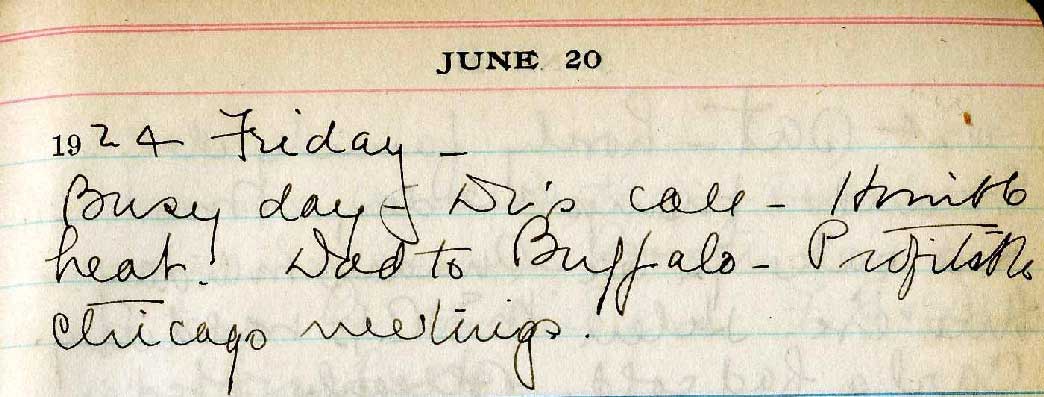 JUNE 20
1924 Friday -
Busy day - Dr's call - Horrible
heat! Dad to Buffalo - Profitable
Chicago meetings.